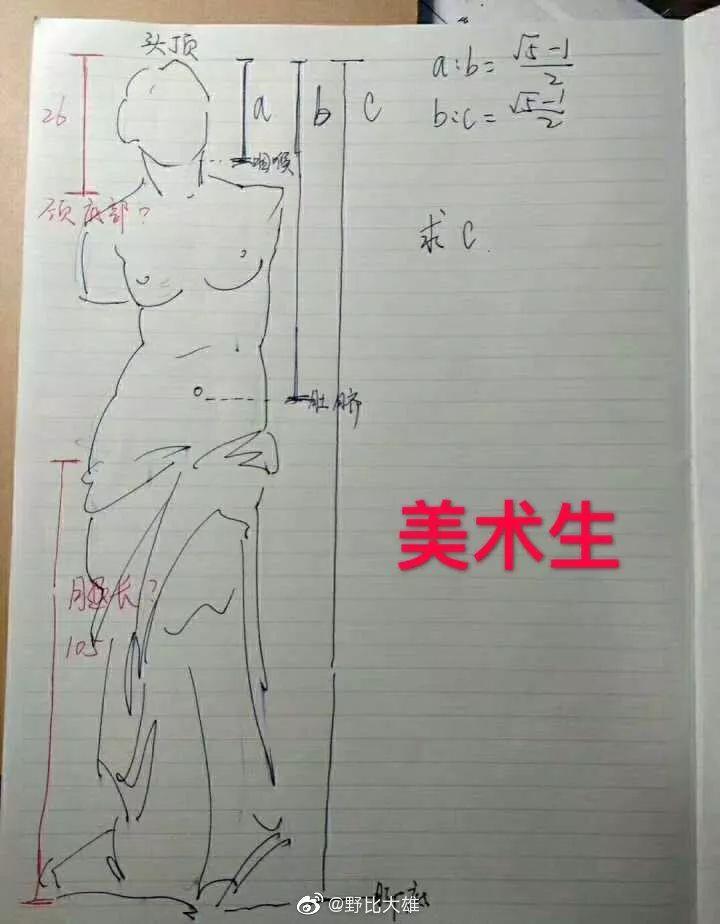 头顶
26
a
b
c
a:b=(√5-1)/2
b:c=(√5-1)/2
咽喉
颈底部?
求c.
肚脐
美术生
腿长?
105
脚底
@野比大雄